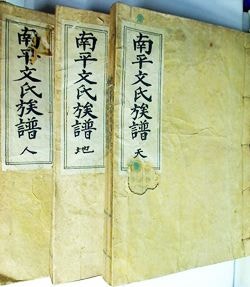 南平文氏族譜 天
南平文氏族譜 地
南平文氏族譜 人